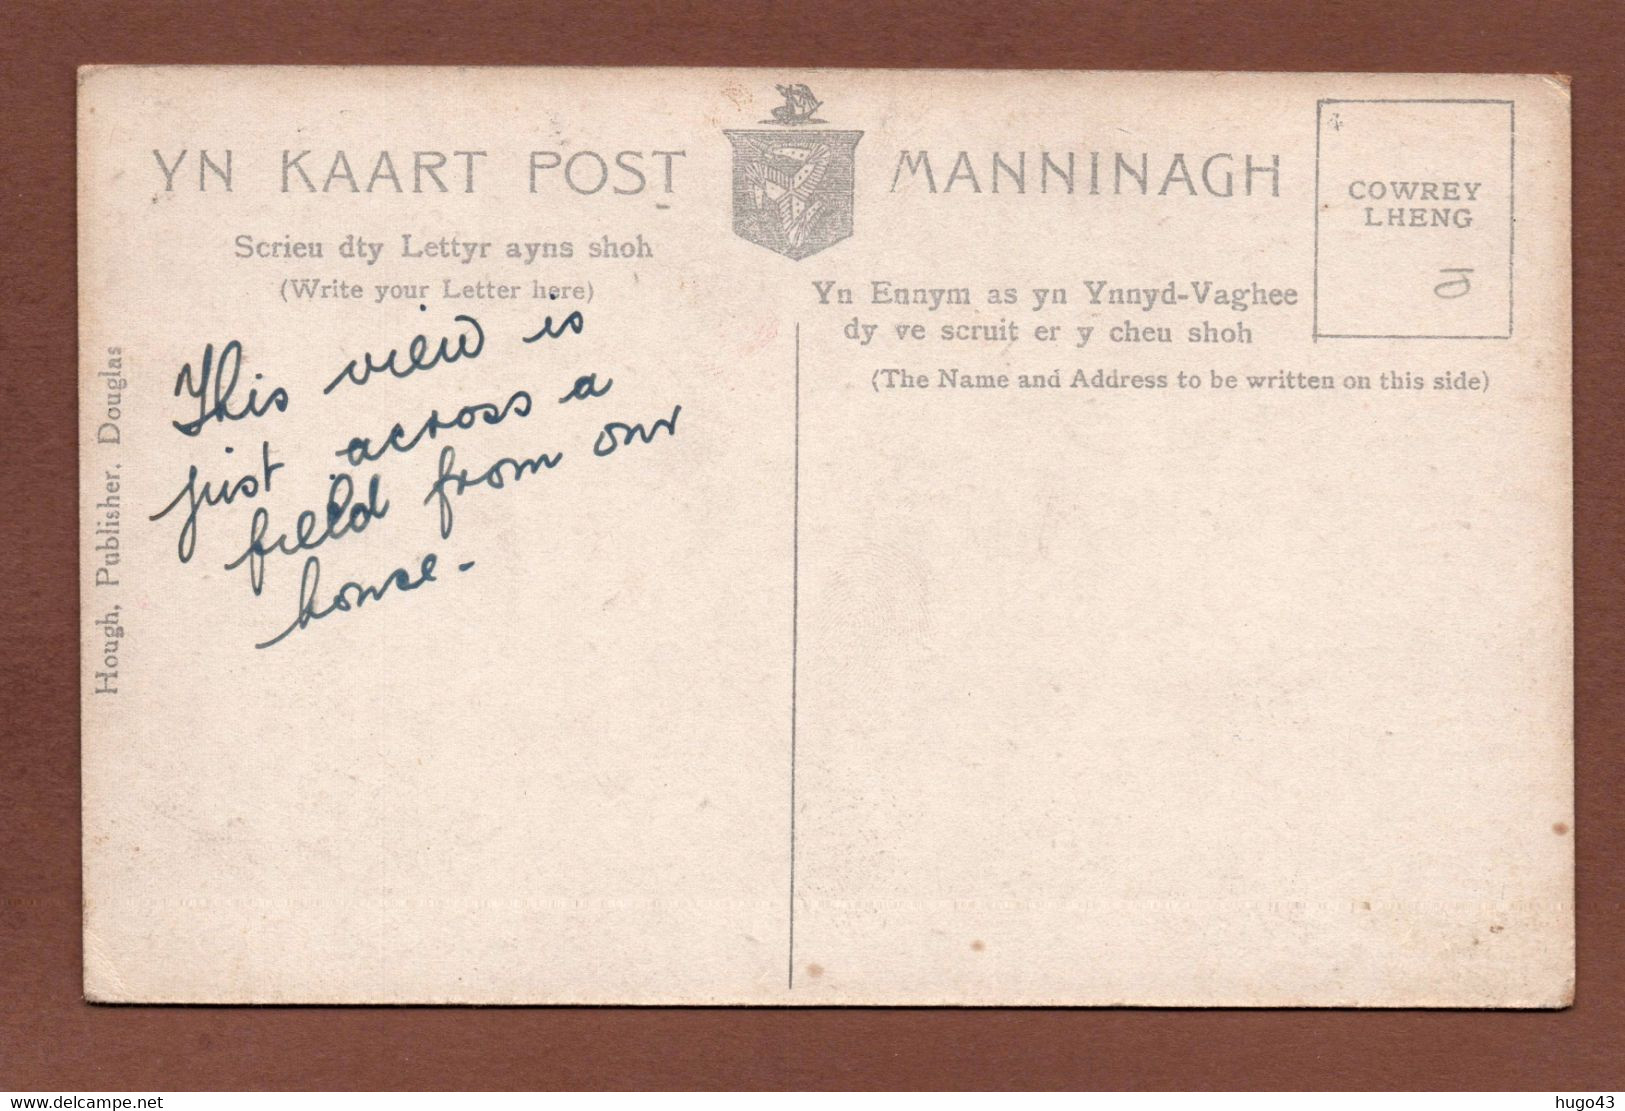 YN KAART POST MANNINAGH
Scrieu dty Lettyr ayns shoh
(Write your Letter here)
This view is
just across a
field from our
house.
Hough, Publisher. Douglas
COWREY
LHENG
Yn Ennym as yn Ynnyd-Vaghee
dy ve scruit er y cheu shoh
(The Name and Address to be written on this side)
delcampe.net
hugo43